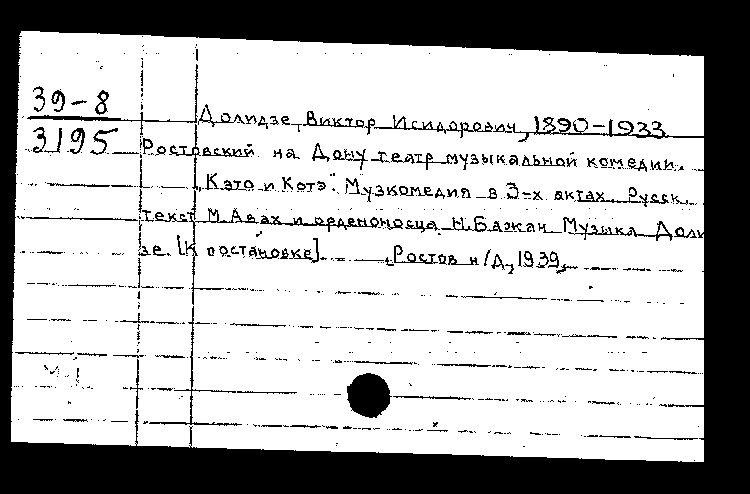 39-8
3195
Долидзе, Виктор Исидорович, 1890-1933
Ростовский на Дону театр музыкальной комедии.
„Кэто и Котэ". Музкомедия в 3-х актах. Русск.
текст М.Авах и орденоносца Н.Бажан Музыка Доли
зе. [К постановке]. Ростов н/Д, 1939,